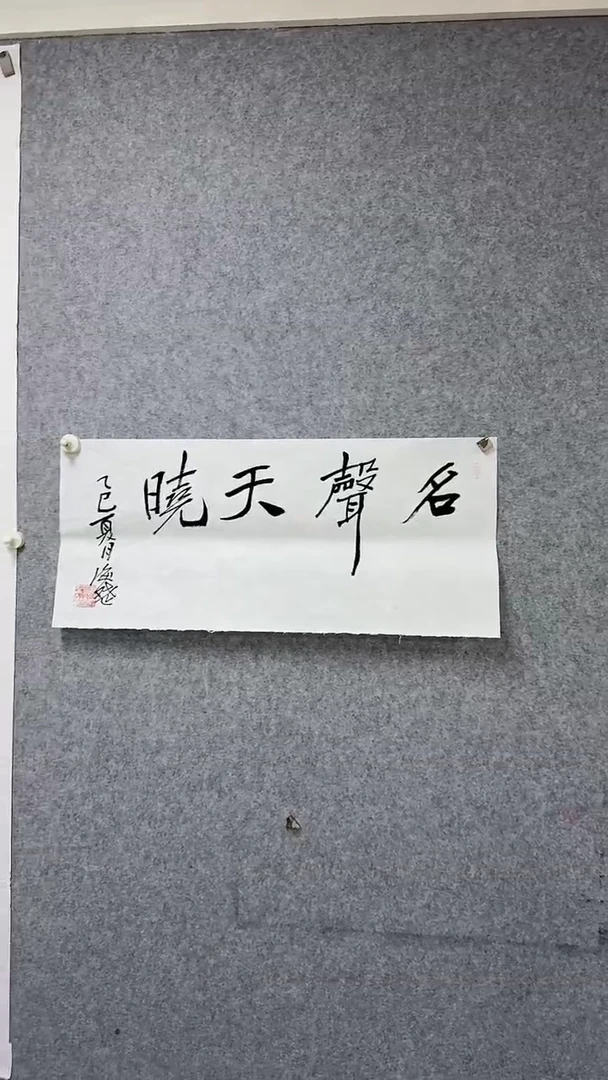 名聲天曉
乙巳夏月海